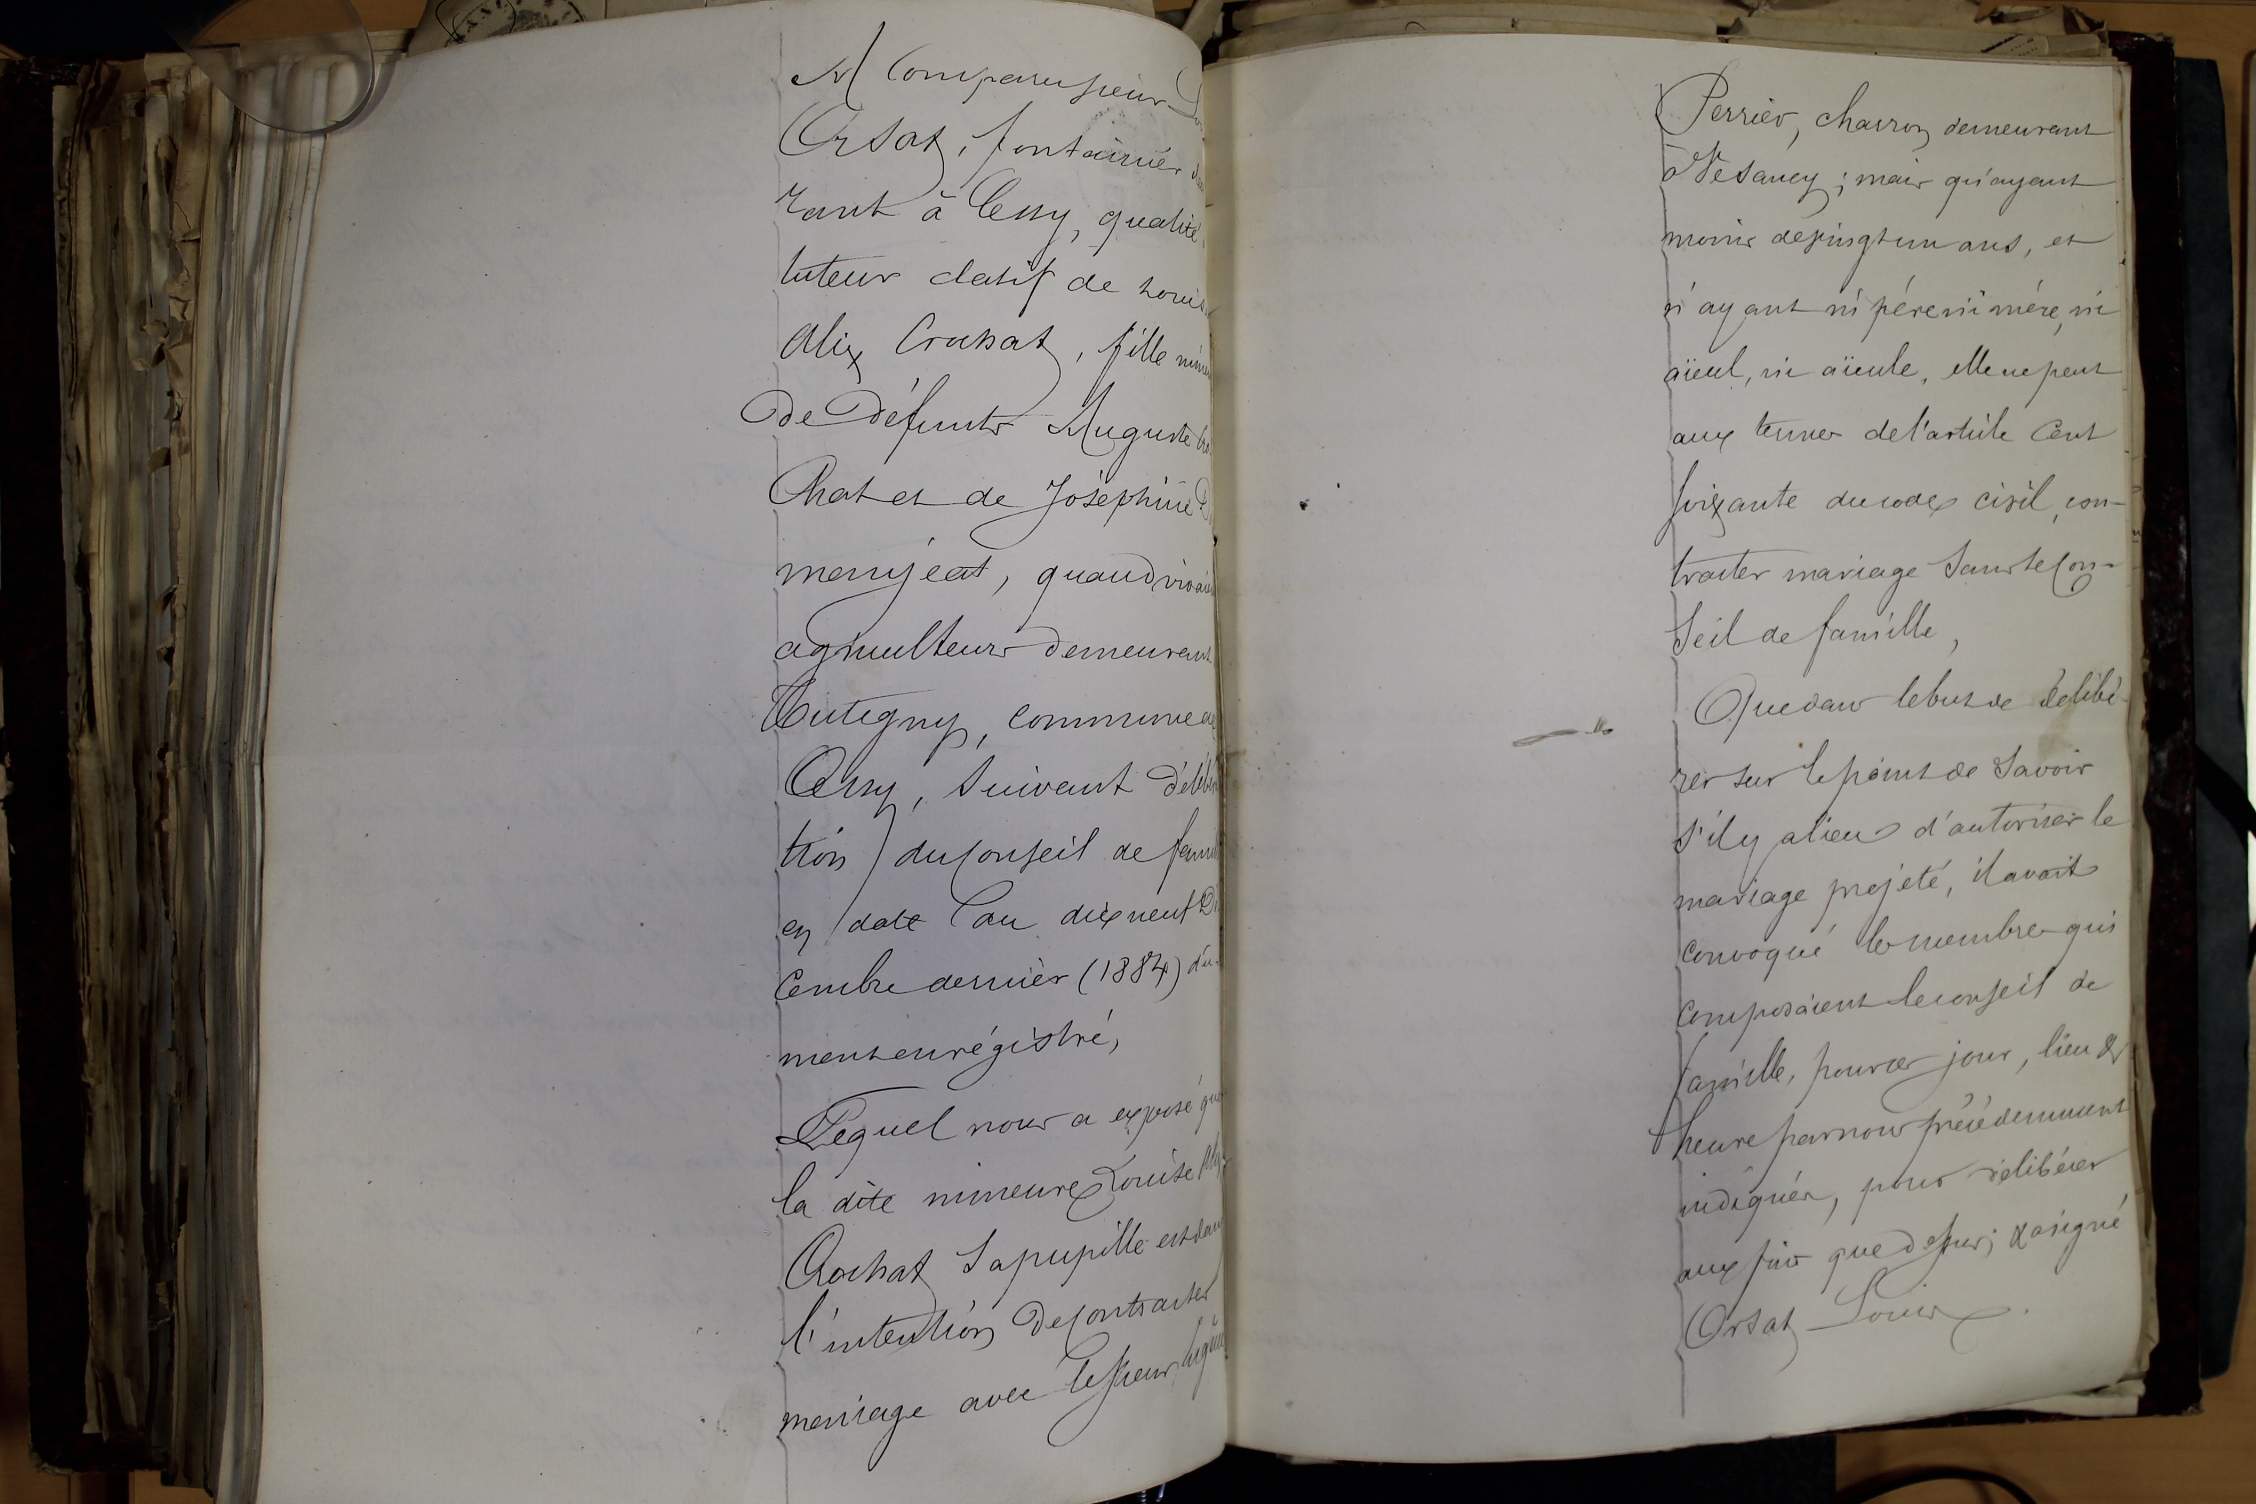 A Comparu sieur
Orsat, fontainier
rant à Cessy, qualité
tuteur datif de Louise
Alix Crochat, fille mineure
De Défunts Auguste Cro
Chat et de Joséphine
monjeat, quand vivaient
agriculteurs demeurant
Tutegny, commune de
Cessy, suivant délibéra
tion du Conseil de famille
en date du dix neuf Dé
Cembre dernier (1884) dû-
ment enrégistré,
Lequel nous a exposé que
la dite mineure Louise Alix
Crochat sa pupille est dans
l'intention de contracter
mariage avec le sieur
Perrier, charron demeurant
à Vesancy; mais qu'ayant
moins de vingt un ans, et
n'ayant ni père ni mère, ni
aïeul, ni aïeule, elle ne peut
aux termes de l'article Cent
soixante du code civil, con-
tracter mariage sans le Con-
seil de famille,
Que dans le but de délibé-
rer sur le point de savoir
s'il y a lieu d'autoriser le
mariage projeté, il avait
convoqué les membres qui
composaient le conseil de
famille, pour ces jour, lieu &
heure par nous précédemment
indiqués, pour délibérer
aux fins que dessus; & a signé
Orsat Louis.